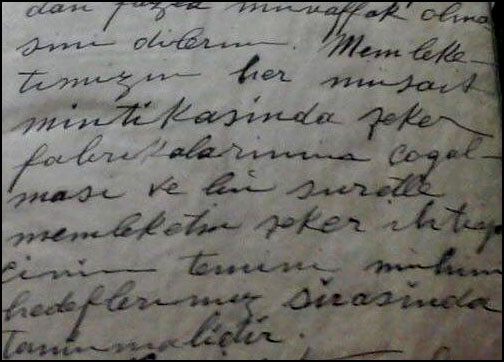 dan fazla muvaffak olma
sını dilerim. Memleke-
timizin her müsait
mıntıkasında şeker
fabrikalarımına çoğal-
ması ve bu suretle
memleketin şeker ihtiya
cının temini mühim
hedeflerimiz sırasında
tanınmalıdır.